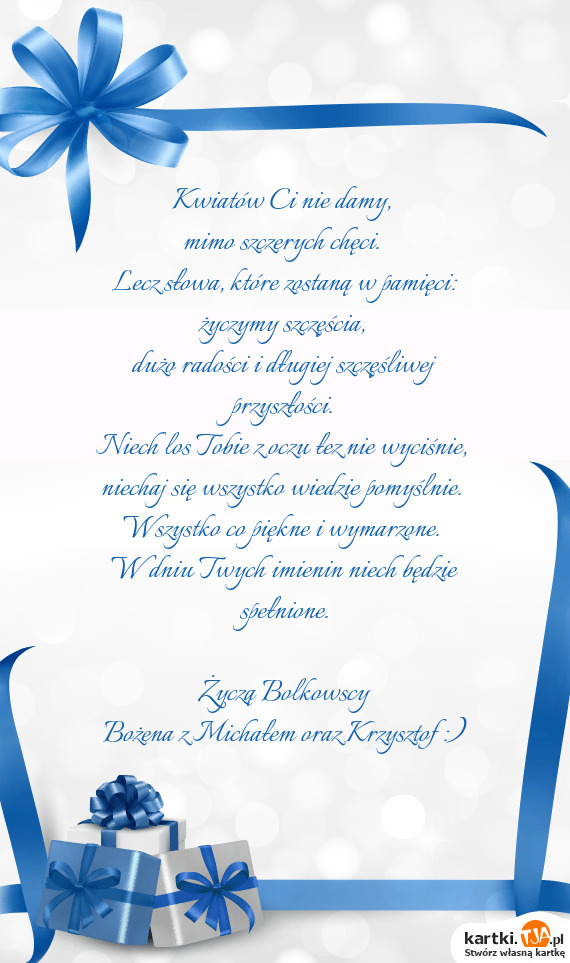 Kwiatów Ci nie damy,
mimo szczerych chęci.
Lecz słowa, które zostaną w pamięci:
życzymy szczęścia,
dużo radości i długiej szczęśliwej
przyszłości.
Niech los Tobie z oczu łez nie wyciśnie,
niechaj się wszystko wiedzie pomyślnie.
Wszystko co piękne i wymarzone.
W dniu Twych imienin niech będzie
spełnione.
Życzą Bolkowscy
Bożena z Michałem oraz Krzysztof :)
kartki.TJA.pl
Stwórz własną kartkę